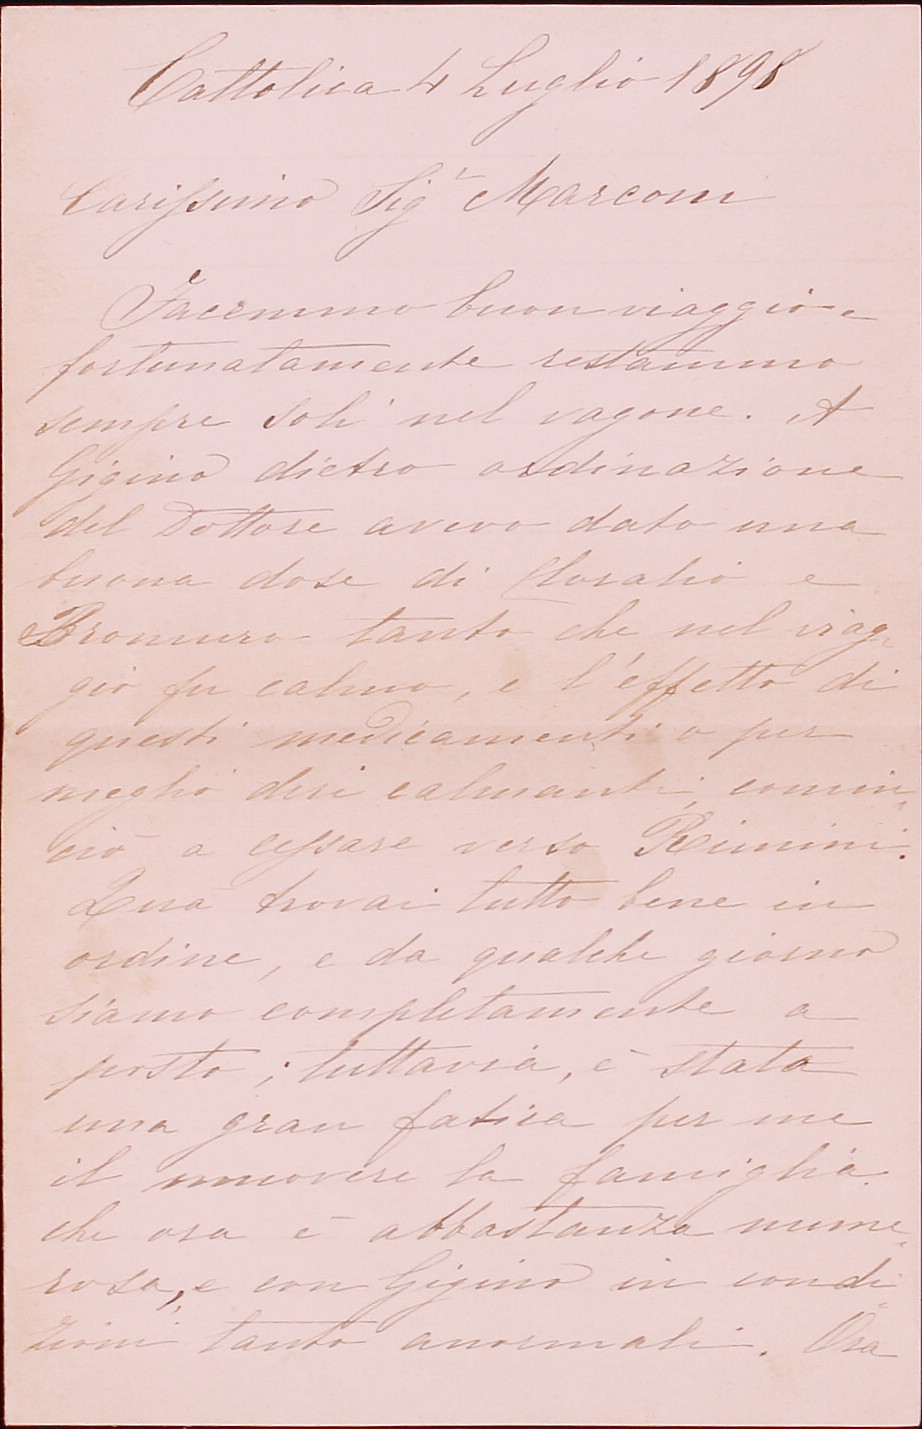 Cattolica 4 Luglio 1898
Carissimo Sigr Marconi
Facemmo buon viaggio e
fortunatamente restammo
sempre soli nel vagone. A
Gigino dietro ordinazione
del Dottore avevo dato una
buona dose di Cloralio e
Bromuro tanto che nel viag=
gio fu calmo, e l'effetto di
questi medicamenti o per
meglio dire calmanti, comin=
ciò a cessare verso Rimini.
Quà trovai tutto bene in
ordine, e da qualche giorno
siamo completamente a
posto; tuttavia, è stata
una gran fatica per me
il muovere la famiglia
che ora è abbastanza nume=
rosa, e con Gigino in condi=
zioni tanto anormali. Ora